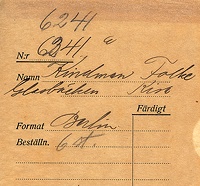 6241
N:r 6241 e
Namn Kindman Folke
Glasbacken Kisa
Färdigt
Format Berlin
Beställn. 6 st.